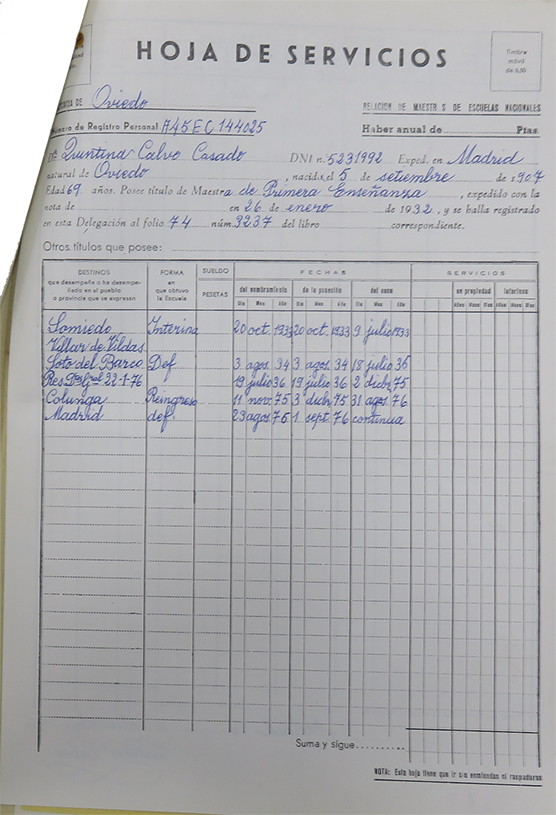 HOJA DE SERVICIOS
Timbre
móvil
de 3,00
DE Oviedo
RELACION DE MAESTR S DE ESCUELAS NACIONALES
Número de Registro Personal A45EC144025
Haber anual de Ptas.
Dª Quintina Calvo Casado DNI n.º 5231992 Exped. en Madrid
natural de Oviedo, nacida el 5 de setiembre de 1907
Edad 69 años. Posee título de Maestra de Primera Enseñanza, expedido con la
nota de en 26 de enero de 1932, y se halla registrado
en esta Delegación al folio 74 núm. 3237 del libro correspondiente.
Otros títulos que posee:
DESTINOS FORMA SUELDO FECHAS SERVICIOS
que desempeña o ha desempe- en
ñado en el pueblo que obtuvo del nombramiento de la posesión del cese en propiedad interinos
o provincia que se expresan la Escuela PESETAS Día Mes Año Día Mes Año Día Mes Año Años Meses Días Años Meses Días
Somiedo Interina 20 oct. 1933 20 oct. 1933 9 julio 1933
Villar de Vildas
Soto del Barco Def. 3 agos 34 3 agos 34 18 julio 36
Res. Dº Gral 22-1-76 19 julio 36 19 julio 36 2 dicbr 75
Colunga Reingreso 11 nov. 75 3 dicbr 75 31 agos. 76
Madrid def. 23 agos 76 1 sept. 76 continua
Suma y sigue
NOTA: Esta hoja tiene que ir sin enmiendas ni raspaduras